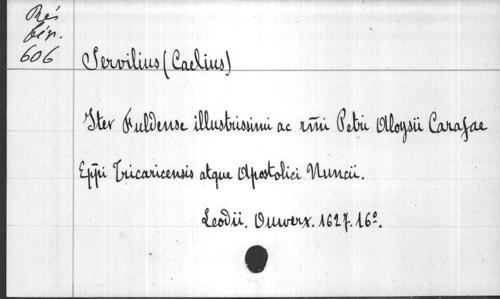 Rés
bép.
606
Servilius (Caelius)
Iter Fuldense illustrissimi ac rm̃i Petri Aloysii Carafae
Epp̃i Tricaricensis atque Apostolici Nuncii.
Leodii. Ouwerx. 1627. 16º.